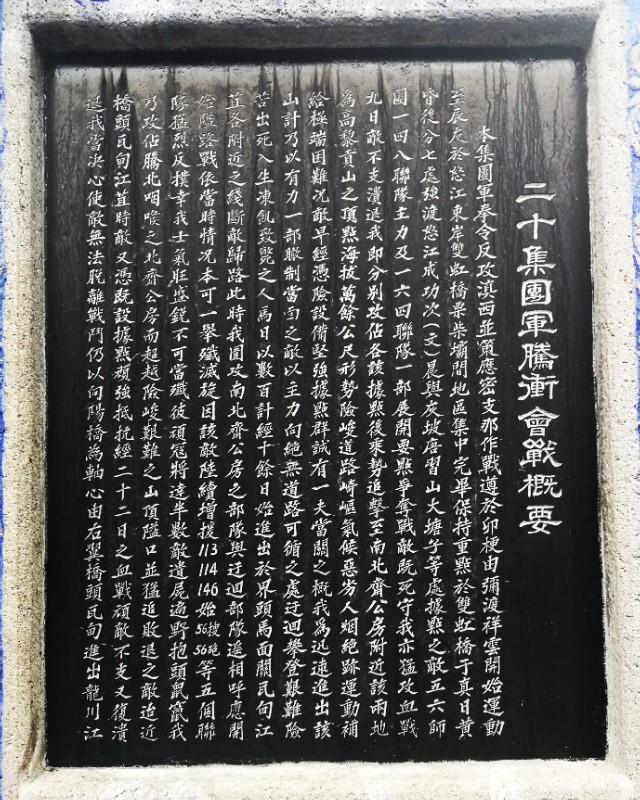 二十集團軍騰衝會戰概要
本集團軍奉令反攻滇西並策應密支那作戰遵於卯梗由彌渡祥雲開始運動
至辰灰於怒江東岸雙虹橋栗柴壩間地區集中完畢保持重點於雙虹橋于真日黄
昏後分七處強渡怒江成功次(文)晨與灰坡唐習山大塘子等處據點之敵五六師
團一四八聯隊主力及一六四聯隊一部展開要點爭奪戰敵既死守我亦猛攻血戰
九日敵不支潰退我即分別攻佔各該據點後乘勢追擊至南北齋公房附近該兩地
為高黎貢山之頂點海拔萬餘公尺形勢險峻道路崎嶇氣候惡劣人烟絶跡運動補
給極端困難况敵早經憑險設備堅強據點群誠有一夫當關之概我為迅速進出該
山計乃以有力一部牽制當面之敵以主力向絶無道路可循之處迂迴攀登艱難險
苦出死入生凍飢致斃之人馬日以數百計經十餘日始進出於界頭馬面關瓦甸江
苴各附近之綫斷敵歸路此時我圍攻南北齋公房之部隊與迂迴部隊遥相呼應開
始隘路戰依當時情况本可一舉殲滅旋因該敵陸續增援113 114 146始56搜56砲等五個聯
隊猛烈反撲幸我士氣旺盛鋭不可當殲彼頑冦將達半數敵遺屍遍野抱頭鼠竄我
乃攻佔騰北咽喉之北齋公房而超越險峻艱難之山頂隘口並猛追敗退之敵迨近
橋頭瓦甸江苴時敵又憑既設據點頑強抵抗經二十二日之血戰頑敵不支又復潰
退我當決心使敵無法脱離戰鬥仍以向陽橋為軸心由右翼橋頭瓦甸進出龍川江